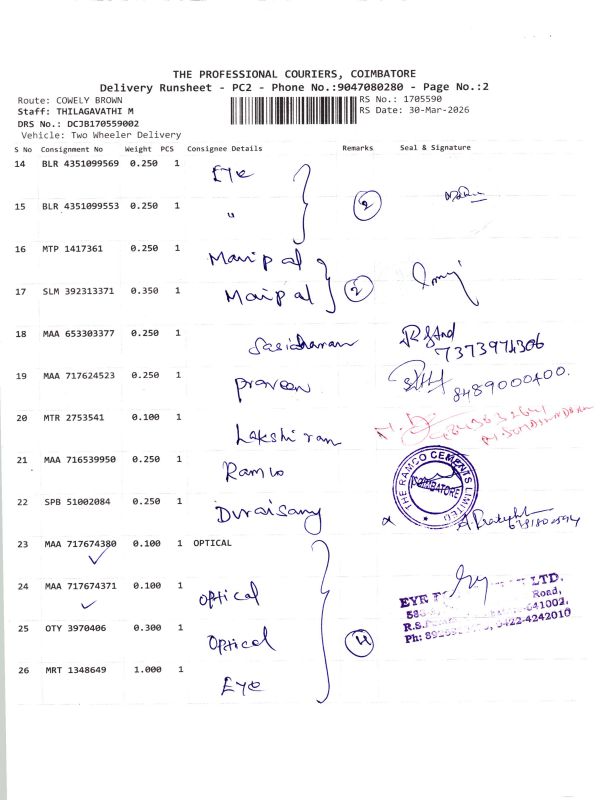 THE PROFESSIONAL COURIERS, COIMBATORE
Delivery Runsheet - PC2 - Phone No.:9047080280 - Page No.:2
Route: COWELY BROWN
RS No.: 1705590
Staff: THILAGAVATHI M
RS Date: 30-Mar-2026
DRS No.: DCJB170559002
Vehicle: Two Wheeler Delivery
S No Consignment No Weight PCS Consignee Details Remarks Seal & Signature
14 BLR 4351099569 0.250 1 Eye
15 BLR 4351099553 0.250 1 " 2
16 MTP 1417361 0.250 1 Manipal
17 SLM 392313371 0.350 1 Manipal 2
18 MAA 653303377 0.250 1 Sasidharan
7373974306
19 MAA 717624523 0.250 1 Praveen
8489000400.
20 MTR 2753541 0.100 1 Lakshiram
21 MAA 716539950 0.250 1 Ramco
THE RAMCO CEMENTS LIMITED
COIMBATORE
22 SPB 51002084 0.250 1 Duraisamy
23 MAA 717674380 0.100 1 OPTICAL
24 MAA 717674371 0.100 1 Optical
EYE LTD.
Road,
25 OTY 3970406 0.300 1 Optical 4
641002.
0422-4242010
26 MRT 1348649 1.000 1 Eye